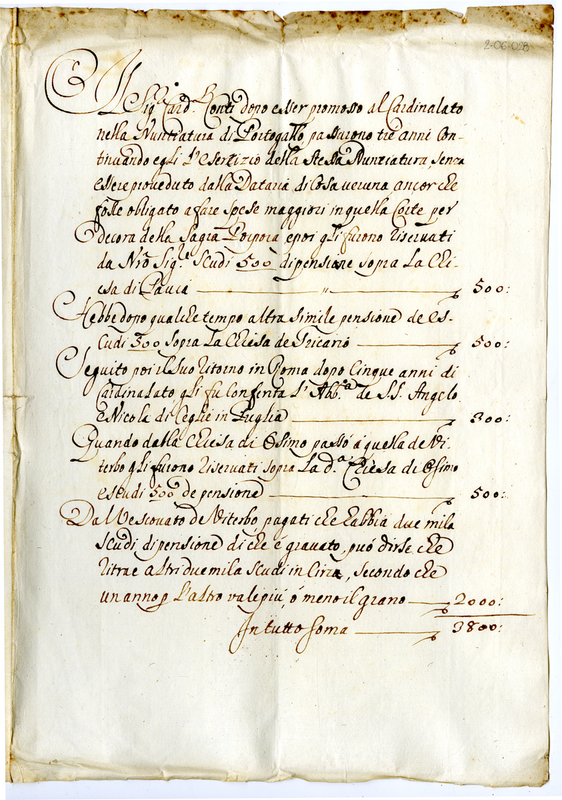 2-06-028
Il Sig.r Card. Conti dopo esser promosso al Cardinalato
nella Nuntiatura di Portogallo passarono tre anni con-
tinuando egli l'esercizio della stessa Nunziatura, senza
essere proveduto dalla Dataria di cosa veruna ancor che
fosse obligato a fare spese maggiori in quella Corte per
decoro della Sagra Porpora, e poi gli furono riservati
da N'ro Sig.re scudi 500 di pensione sopra la Chi-
esa di Pavia 500:
Hebbe dopo qualche tempo altra simile pensione de es-
cudi 500 sopra la Chiesa de Tricario 500:
Seguito poi il suo ritorno in Roma dopo cinque anni di
Cardinalato gli fu conferita l'Abb.a de S.S. Angelo
e Nicola di Ceglie in Puglia 300:
Quando dalla Chiesa di Osimo passó a quella de Vi-
terbo gli furono riservati sopra la d.a Chiesa di Osimo
escudi 500 de pensione 500:
Dal Vescovato de Viterbo pagati che habbia due mila
scudi di pensione di che é gravato, può dirse che
ritrae altri due mila scudi in circa, secondo che
un anno p l'altro vale più, ó meno il grano 2000:
In tutto soma 3800: